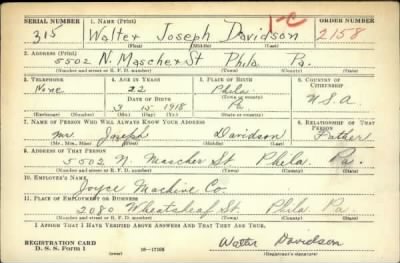 SERIAL NUMBER 1. NAME (Print) 1-C ORDER NUMBER
315 Walter Joseph Davidson 2158
(First) (Middle) (Last)
2. ADDRESS (Print)
5502 N. Mascher St Phila Pa.
(Number and street or R. F. D. number) (Town) (County) (State)
3. TELEPHONE 4. AGE IN YEARS 5. PLACE OF BIRTH 6. COUNTRY OF CITIZENSHIP
None 22 Phila.
DATE OF BIRTH (Town or county)
3 15 1918 Pa U.S.A.
(Exchange) (Number) (Mo.) (Day) (Yr.) (State or country)
7. NAME OF PERSON WHO WILL ALWAYS KNOW YOUR ADDRESS 8. RELATIONSHIP OF THAT PERSON
Mr. Joseph Davidson Father
(Mr., Mrs., Miss) (First) (Middle) (Last)
9. ADDRESS OF THAT PERSON
5502 N. Mascher St Phila. Pa.
(Number and street or R. F. D. number) (Town) (County) (State)
10. EMPLOYER'S NAME
Joyce Machine Co.
11. PLACE OF EMPLOYMENT OR BUSINESS
2080 Wheatsheaf St Phila Pa.
(Number and street or R. F. D. number) (Town) (County) (State)
I AFFIRM THAT I HAVE VERIFIED ABOVE ANSWERS AND THAT THEY ARE TRUE.
REGISTRATION CARD
D. S. S. Form 1 (over) 16-17105 Walter Davidson
(Registrant's signature)